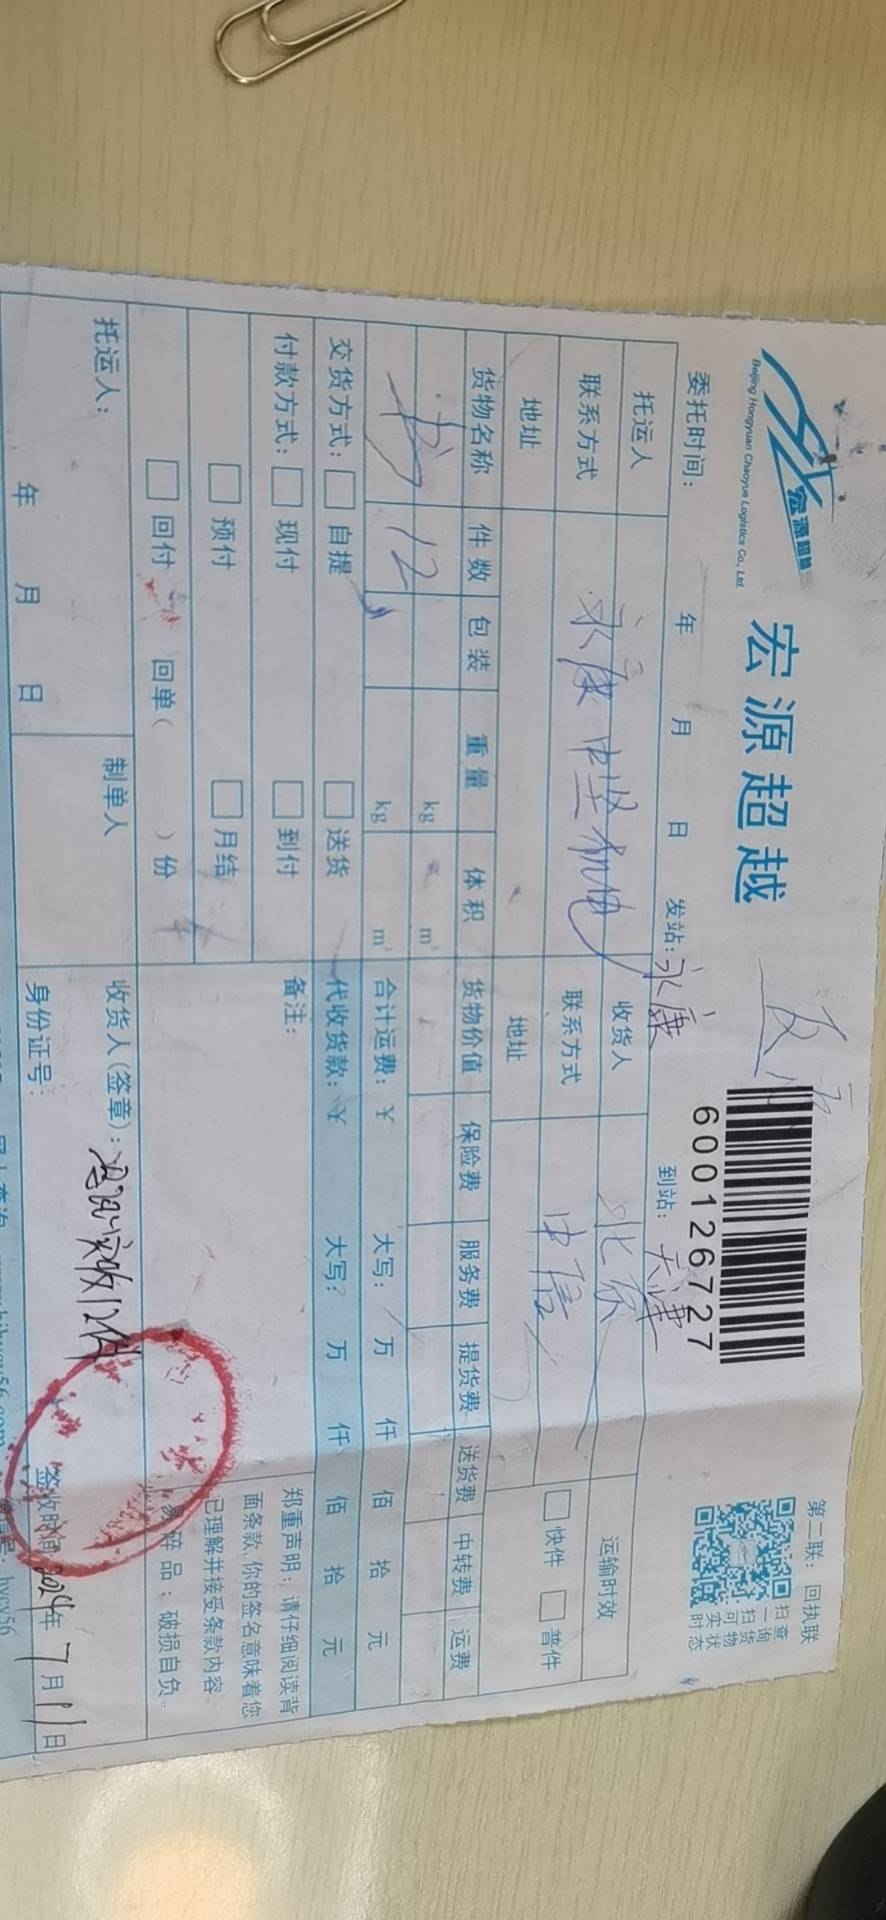 宏源超越
Beijing Hongyuan Chaoyue Logistics Co., Ltd
宏源超越
600126727
第二联：回执联
扫查
一询
扫货
可物
实状
时态
委托时间： 年 月 日 发站：永康 到站：天津
托运人 永康中坚机电 收货人 北京 运输时效
联系方式 联系方式 中信 快件 普件
地址 地址
货物名称 件数 包装 重量 体积 货物价值 保险费 服务费 提货费 送货费 中转费 运费
kg m³
12 kg m³ 合计运费：¥ 大写： 万 仟 佰 拾 元
交货方式： 自提 送货 代收货款：¥ 大写： 万 仟 佰 拾 元
付款方式： 现付 到付 备注：
预付 月结
回付 回单（ ）份
郑重声明：请仔细阅读背
面条款，你的签名意味着您
已理解并接受条款内容。
易碎品：破损自负。
托运人： 制单人 收货人（签章）： 实收12件
年 月 日 身份证号： 签收时间 2024年7月11日